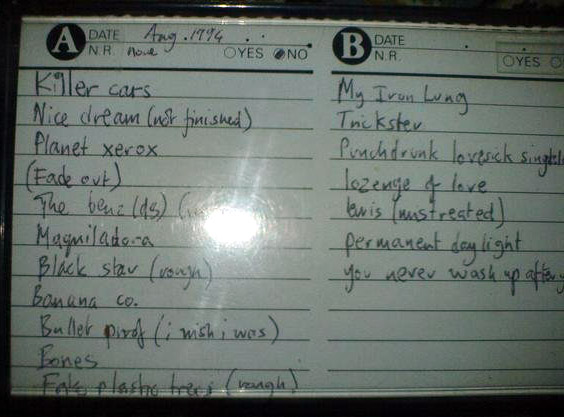 A DATE Aug. 1994
N.R. None YES NO
Killer cars
Nice dream (not finished)
Planet xerox
(Fade out)
The benz (ds)
Maquiladora
Black star (rough)
Banana co.
Bullet proof (i wish i was)
Bones
Fake plastic trees (rough)
B DATE
N.R. YES
My Iron Lung
Trickster
Punchdrunk lovesick
lozenge of love
lewis (mistreated)
permanent daylight
you never wash up after